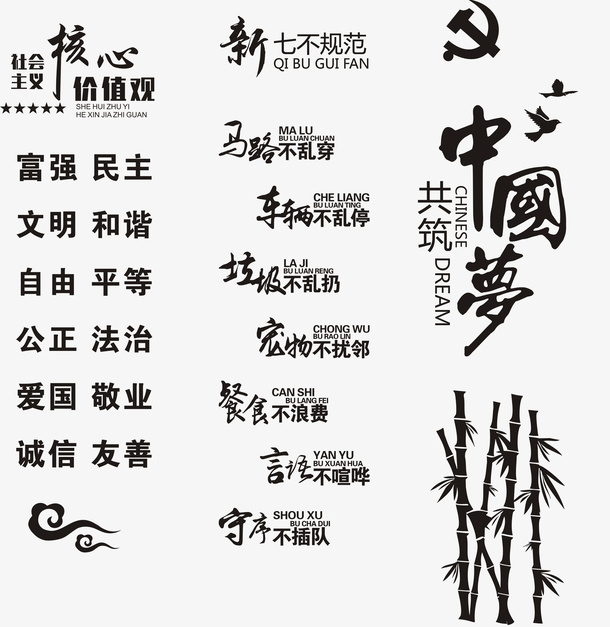 社会
主义
核心
价值观
★★★★★
SHE HUI ZHU YI
HE XIN JIA ZHI GUAN
富强 民主
文明 和谐
自由 平等
公正 法治
爱国 敬业
诚信 友善
新 七不规范
QI BU GUI FAN
马路不乱穿
MA LU
BU LUAN CHUAN
车辆不乱停
CHE LIANG
BU LUAN TING
垃圾不乱扔
LA JI
BU LUAN RENG
宠物不扰邻
CHONG WU
BU RAO LIN
餐食不浪费
CAN SHI
BU LANG FEI
言语不喧哗
YAN YU
BU XUAN HUA
守序不插队
SHOU XU
BU CHA DUI
中國夢
共筑
CHINESE DREAM